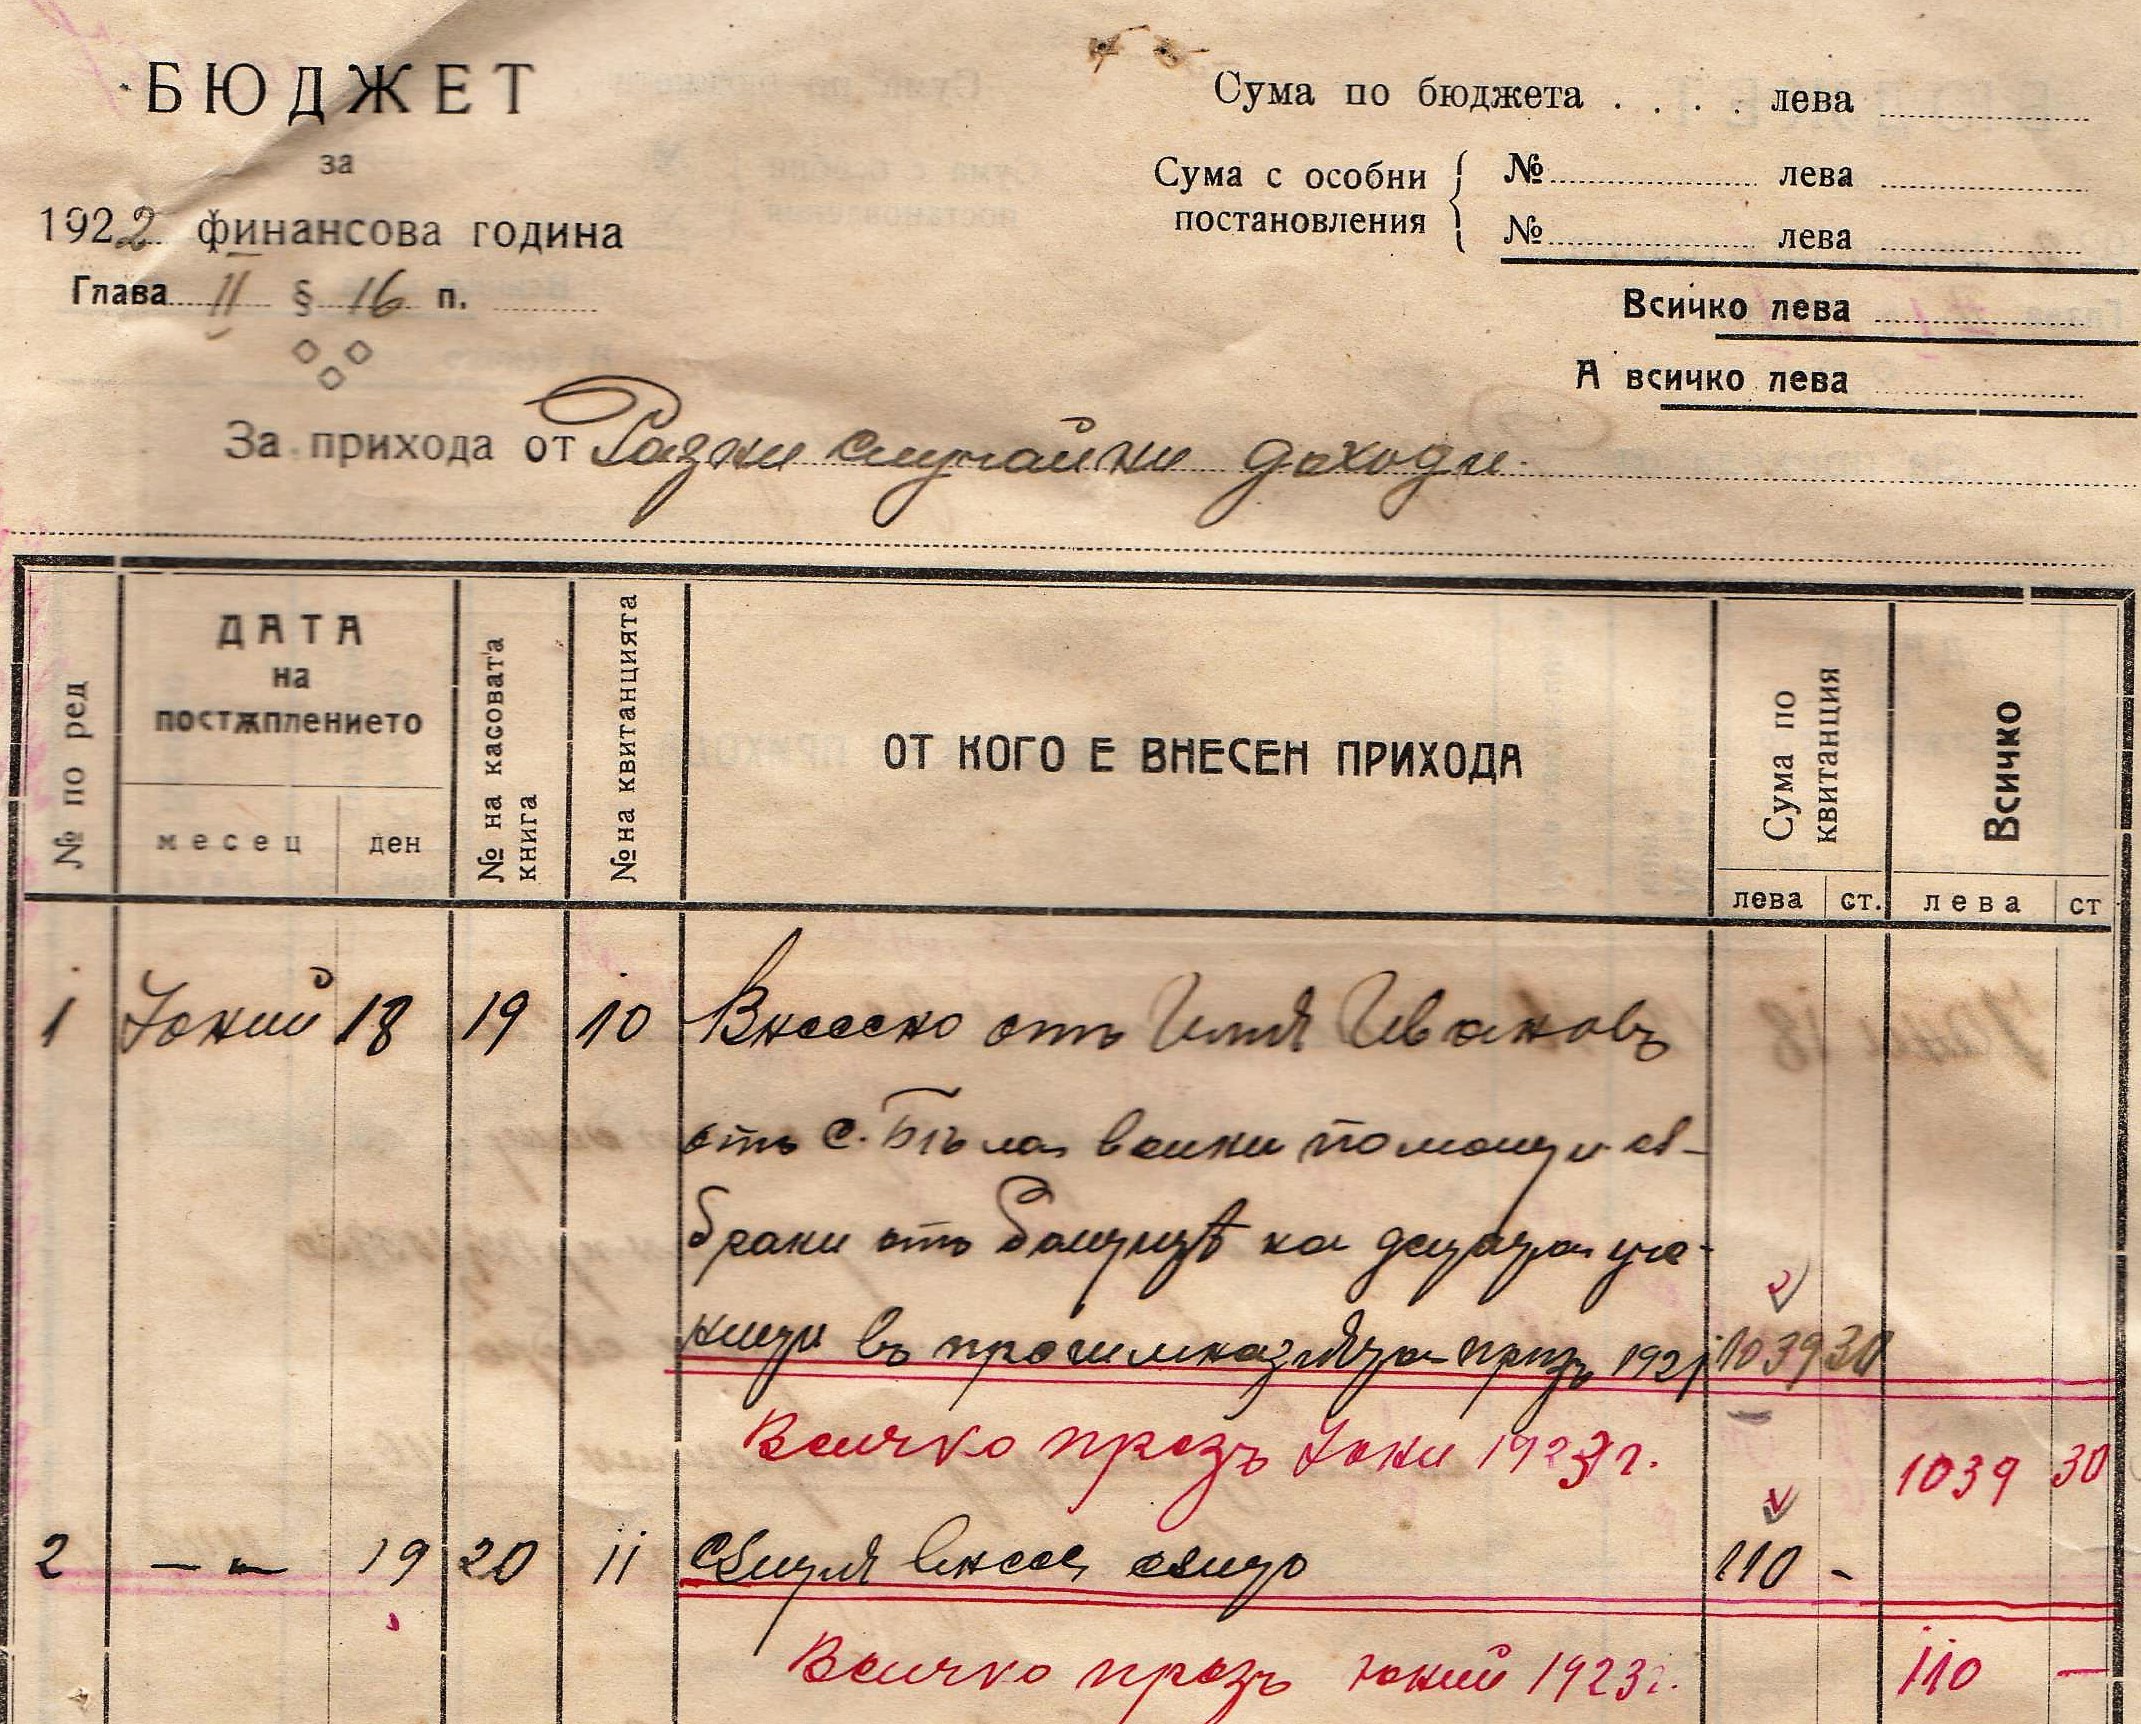 БЮДЖЕТ
за
1922 финансова година
Глава II § 16 п.
Сума по бюджета . . . . лева
Сума с особни постановления
№ лева
№ лева
Всичко лева
А всичко лева
За прихода от Разни случайни доходи.
№ по ред
ДАТА
на
постѫплението
месец ден
№ на касовата
книга
№ на квитанцията
ОТ КОГО Е ВНЕСЕН ПРИХОДА
Сума по
квитанция
лева ст.
Всичко
лева ст
1 Юний 18 19 10 Внесено отъ Илия Ивановъ
отъ с. Бѣла волни помощи съ-
брани отъ бащитѣ на децата уче-
ници въ прогимназията презъ 1921 1039 30
Всичко презъ Юни 1923 г. 1039 30
2 — „ — 19 20 11 Сѫщия внесе сѫщо 110 -
Всичко презъ юний 1923 г. 110 —